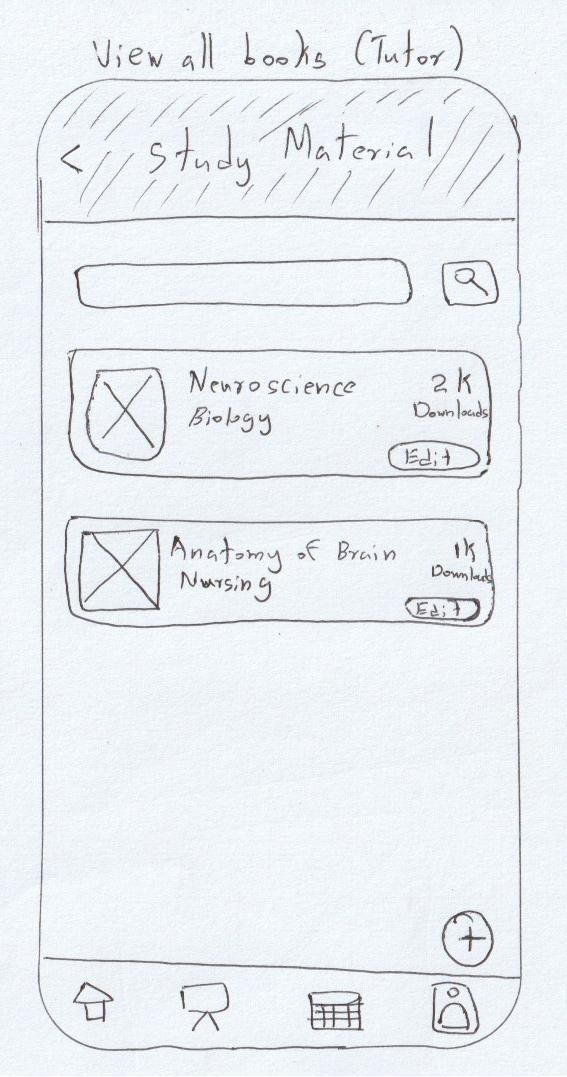 View all books (Tutor)
< Study Material
Neuroscience
Biology
2K
Downloads
Edit
Anatomy of Brain
Nursing
1K
Downloads
Edit
+